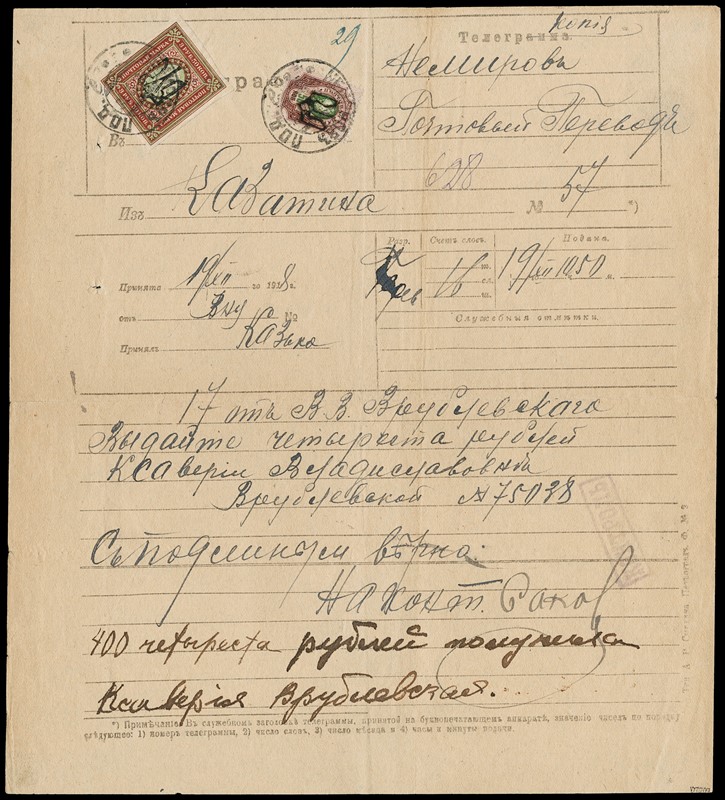 Копія
Телеграмма.
29
Немировъ
Почтовый Переводъ
Въ
628
Изъ Казатина № 57 *)
Разр. Счетъ словъ. Подана.
16 19/XII 10 50
Принята 19/XII го 1918 г.
отъ Вну №
Принялъ
Служебныя отмѣтки.
17 отъ В.В. Врублевскаго
Выдайте четыреста рублей
Ксаверіи Владиславовнѣ
Врублевской №75028
Съ подлиннымъ вѣрно:
400 четыреста рублей получила
Ксаверія Врублевская.
*) Примѣчаніе: Въ служебномъ заголовкѣ телеграммы, принятой на буквопечатающемъ аппаратѣ, значеніе чиселъ по порядку
слѣдующее: 1) номеръ телеграммы, 2) число словъ, 3) число мѣсяца и 4) часы и минуты подачи.